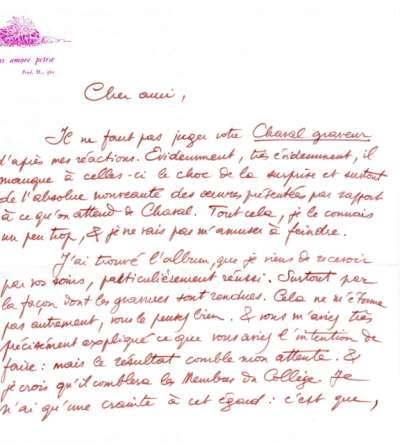 amore petræ
Cher ami,
Il ne faut pas juger votre Chaval graveur
d'après mes réactions. Évidemment, très évidemment, il
manque à celles-ci le choc de la surprise et surtout
de l'absolue nouveauté des œuvres présentées par rapport
à ce qu'on attend de Chaval. Tout cela, je le connais
un peu trop, & je ne vais pas m'amuser à feindre.
J'ai trouvé l'album, que je viens de recevoir
par vos soins, particulièrement réussi. Surtout par
la façon dont les gravures sont rendues. Cela ne m'étonne
pas autrement, vous le pensez bien. & vous m'aviez très
précisément expliqué ce que vous aviez l'intention de
faire : mais le résultat comble mon attente. &
je crois qu'il comblera les Membres du Collège. Je
n'ai qu'une crainte à cet égard : c'est que,